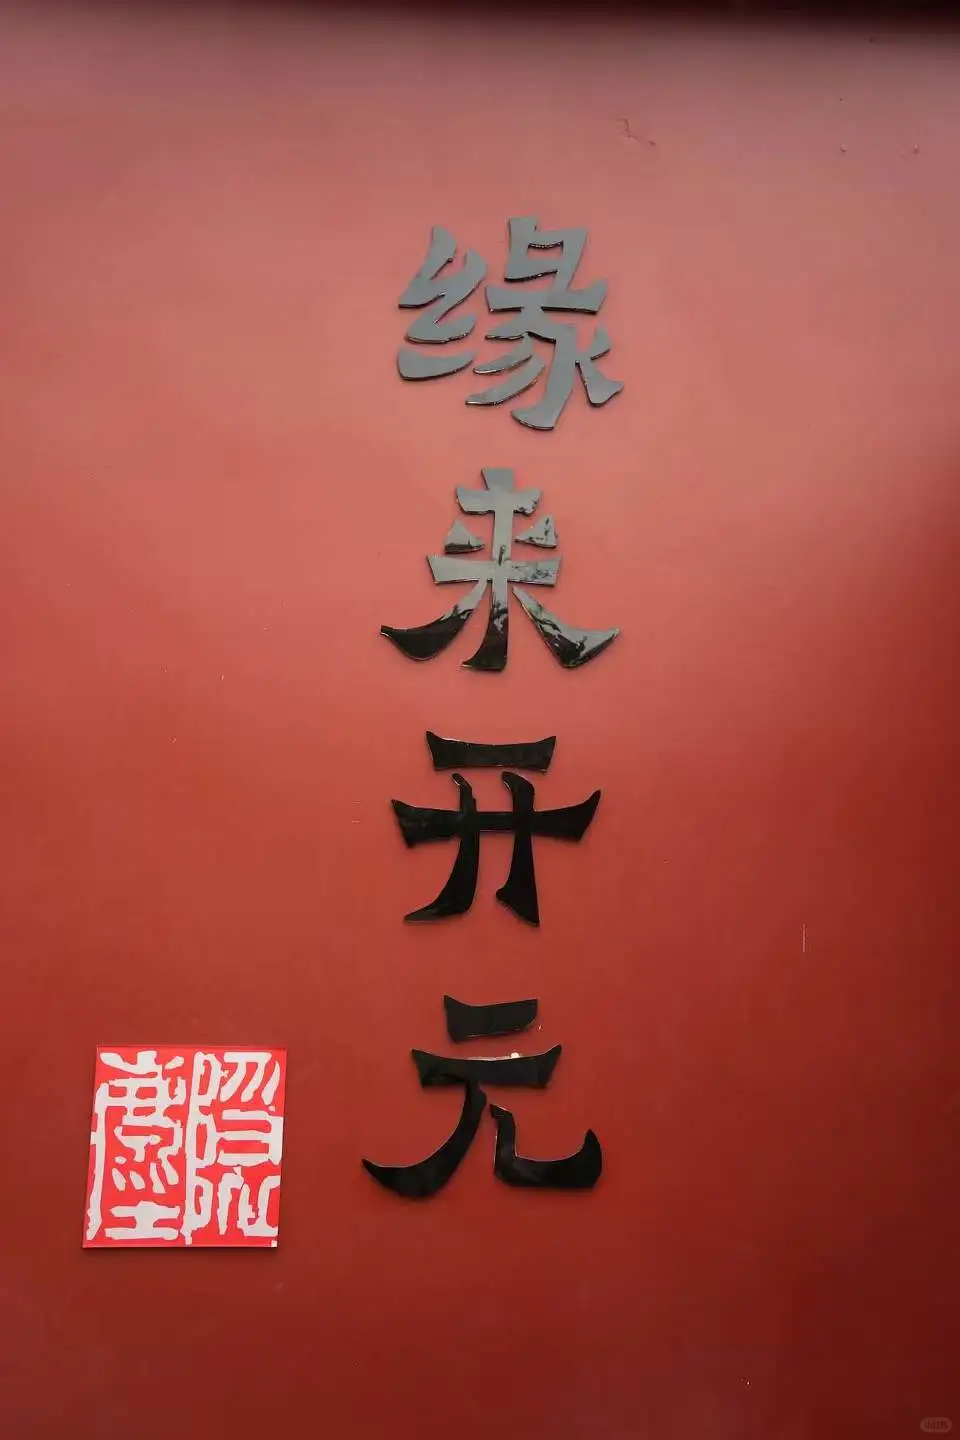 缘来开元